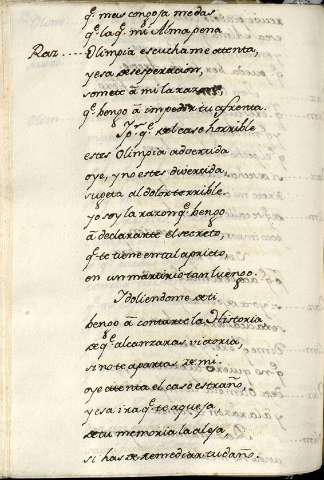 q.e mas congoja me das
q.e la q.e mi Alma pena
Raz..... Olimpia escuchame attenta,
y esa desesperacion,
somete â mi la razon,
q.e bengo â impedir tu afrenta.
Y p.r q.e del caso horrible
estes Olimpia advertida
oye, y no estes divertida,
sugeta al dolor terrible.
yo soy la razon q.e bengo
â declararte el secreto,
q.e te tiene en tal aprieto,
en un martirio tan luengo.
I doliendome de ti
bengo â contarte la Historia
de q.e alcanzaras victoria,
si no te apartas de mi.
oye attenta el caso estraño,
y esa ira q.e te aqueja
de tu memoria la aleja,
si has de remediar tu daño.